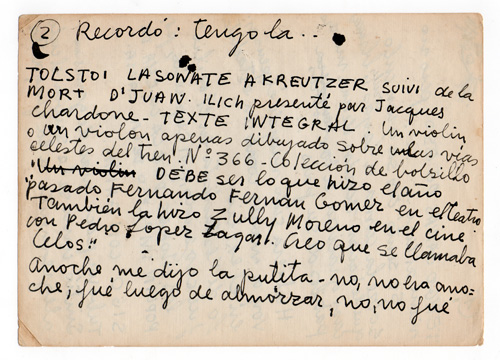 ② Recordó: tengo la...
TOLSTOI LA SONATE A KREUTZER SUIVI de la
MORT D'JUAN. ILICH presenté par Jacques
chardone - TEXTE INTEGRAL. Un violin
o un violon apenas dibujado sobre unas vías
celestes del tren. Nº 366 - Colección de bolsillo
Un violin DEBE ser lo que hizo el año
pasado Fernando Fernan Gomez en el teatro
También la hizo Zully Moreno en el cine
con Pedro Lopez Lagar. Creo que se llamaba
Celos."
Anoche me dijo la putita - no, no era ano-
che, fué luego de almorzar, no, no fué